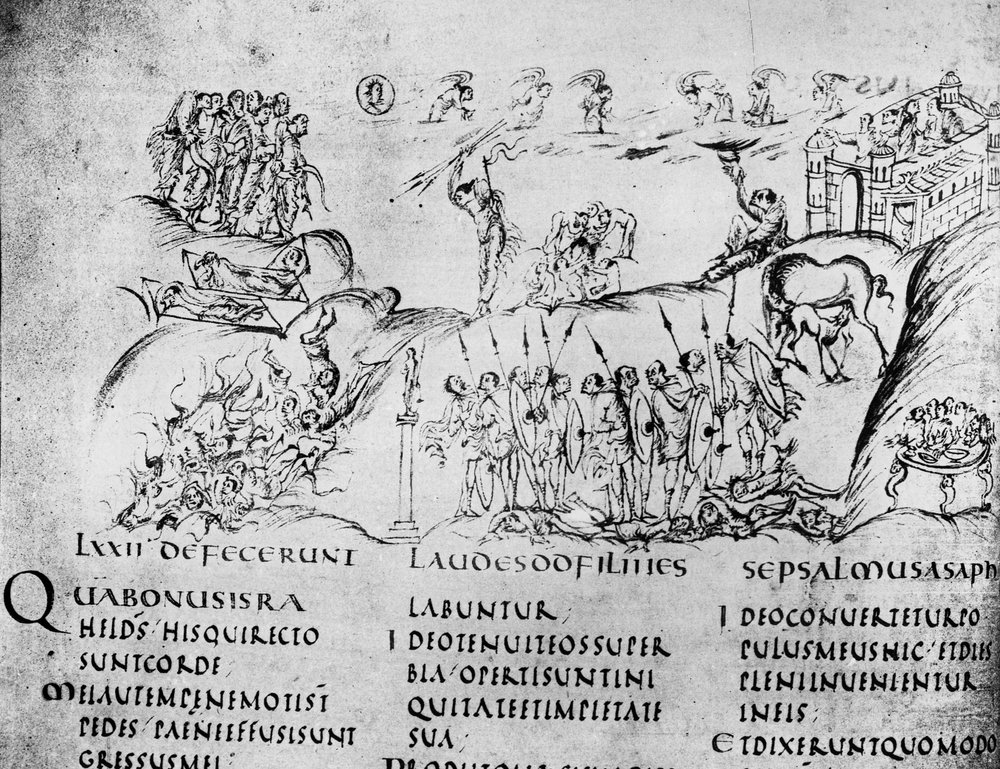 LXXII DEFECERUNT LAUDESDDFILIIIES SEPSALMUSASAPH
QUABONUSISRA
HELDS̄ / HISQUIRECTO
SUNTCORDE;
MEIAUTEMPENEMOTIST̄
PEDES / PAENEEFFUSISUNT
GRESSUSMEI
LABUNTUR;
IDEOTENUITEOSSUPER
BIA / OPERTISUNTINI
QUITATEETIMPIETATE
SUA;
IDEOCONUERTETURPO
PULUSMEUSHIC / ETDIES
PLENIINUENIENTUR
INEIS;
ETDIXERUNTQUOMODO